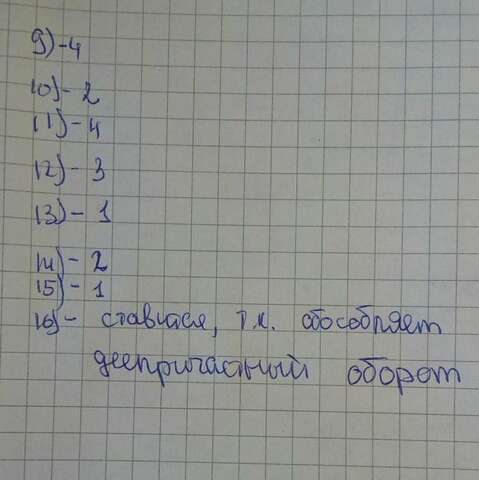 9) - 4
10) - 2
11) - 4
12) - 3
13) - 1
14) - 2
15) - 1
16) - ставиася, т.к. обособляет
деепричастный оборот